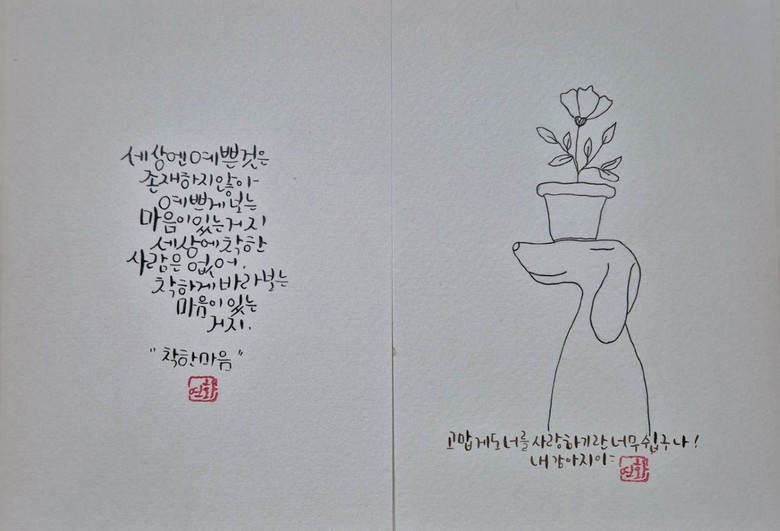 세상엔 예쁜것은
존재하지 않아
예쁘게 보는
마음이 있는거지
세상에 착한
사람은 없어.
착하게 바라보는
마음이 있는
거지.
"착한마음"
연화
고맙게도 너를 사랑하기란 너무 쉽구나!
내 강아지야
연화